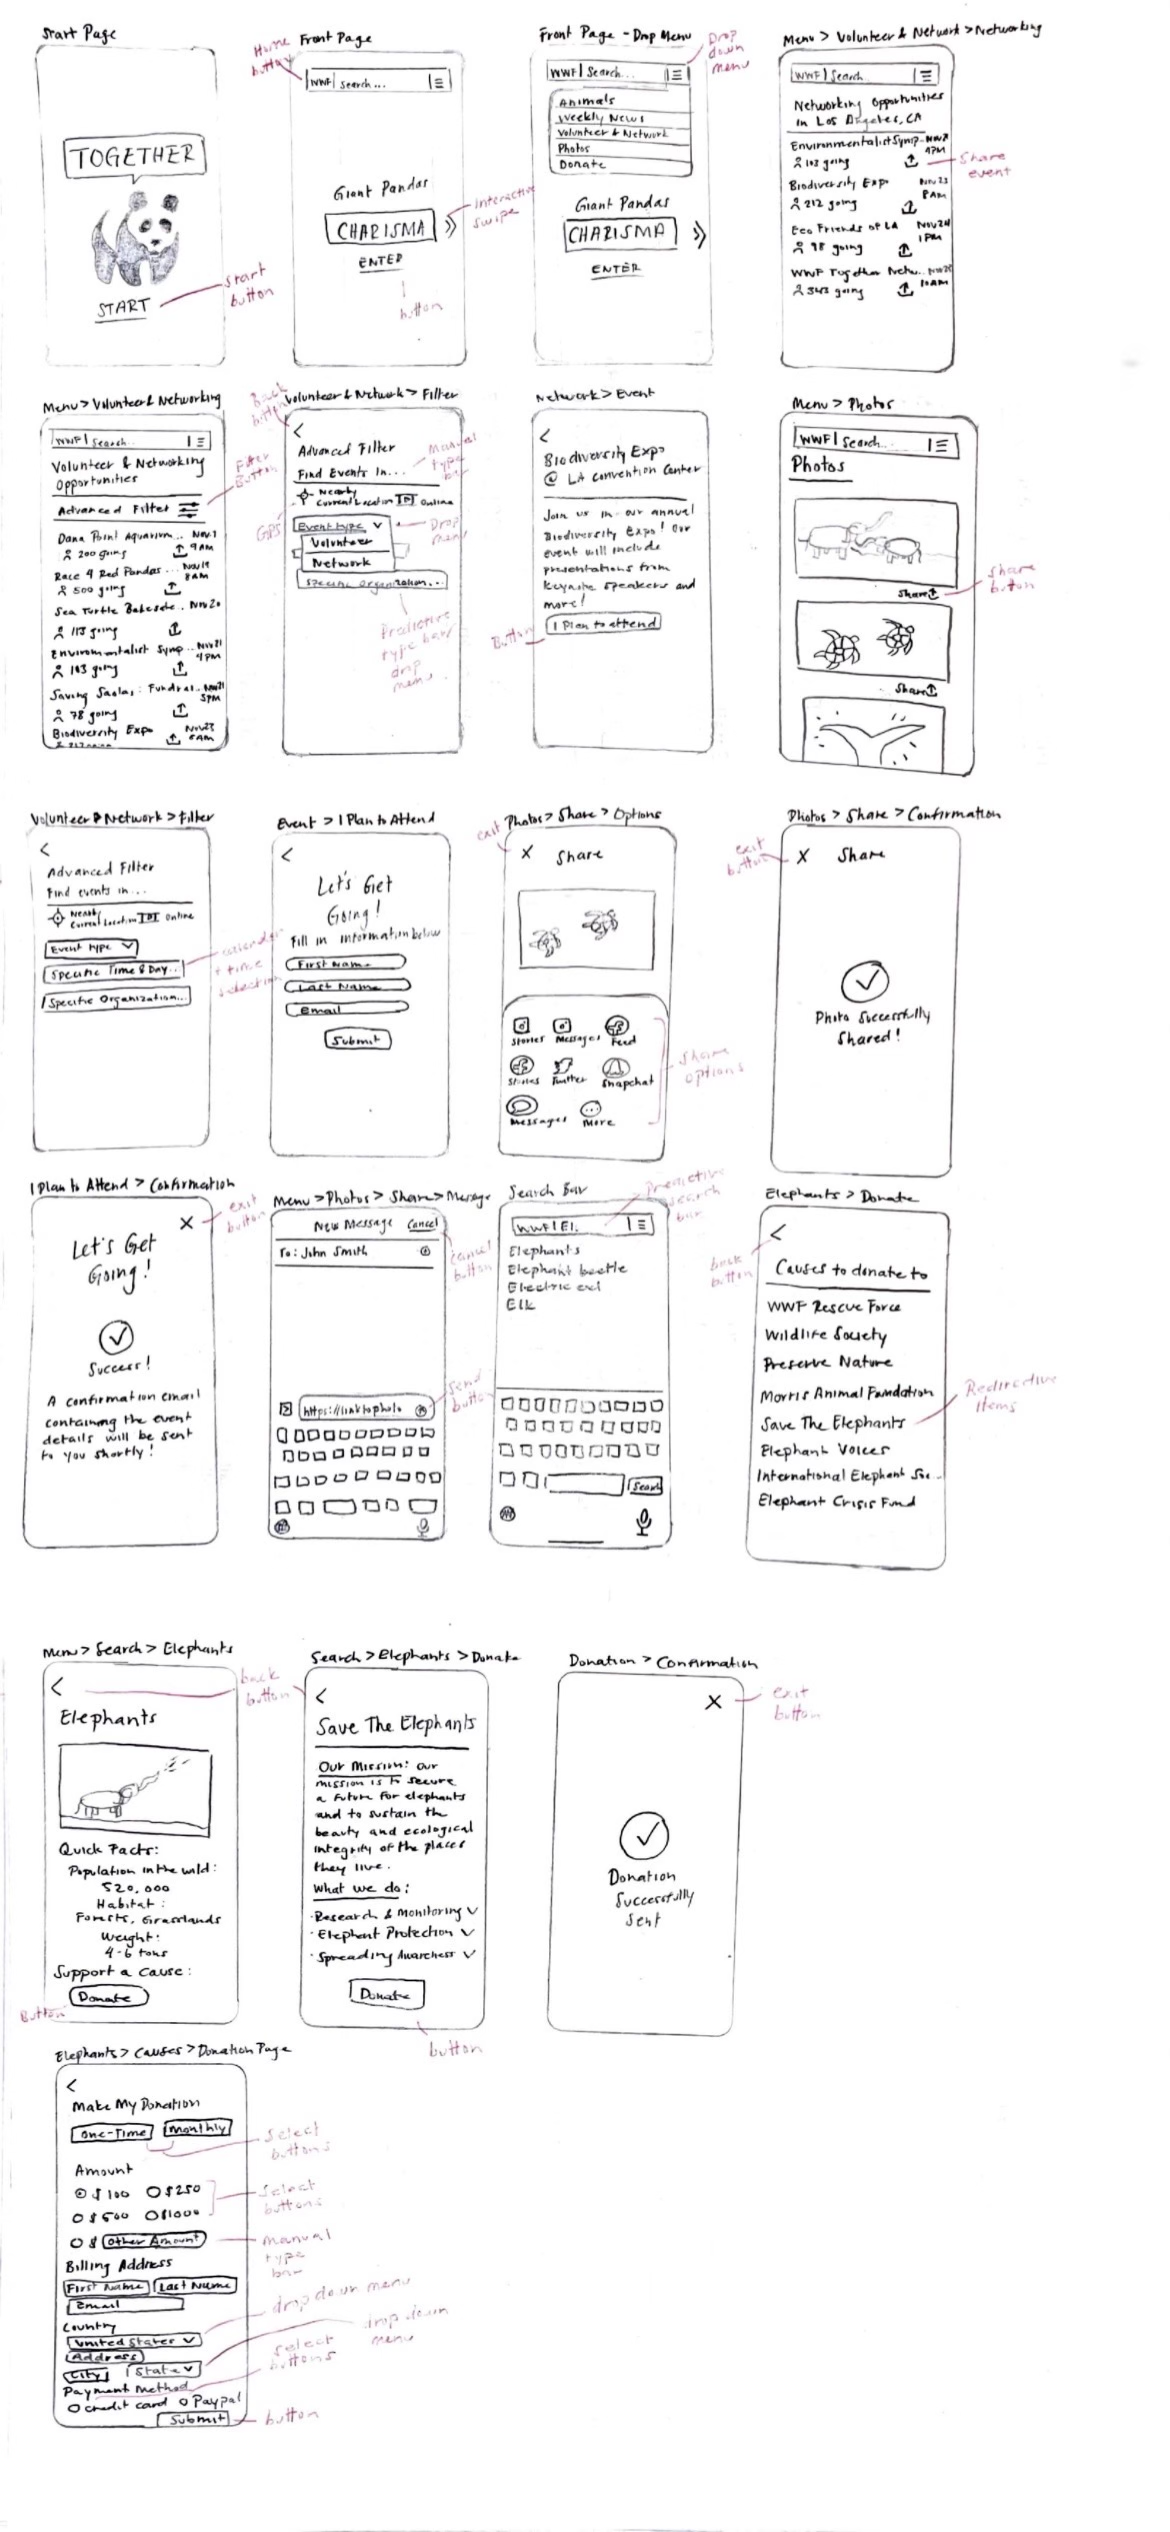 Start Page
TOGETHER
START
start
button
Home
button
Front Page
WWF| Search...
Giant Pandas
CHARISMA
ENTER
Interactive
swipe
button
Front Page - Drop Menu
Drop
down
menu
WWF| Search...
Animals
Weekly News
Volunteer & Network
Photos
Donate
Giant Pandas
CHARISMA
ENTER
Menu > Volunteer & Network > Networking
WWF| Search
Networking Opportunities
in Los Angeles, CA
Environmentalist Symp..
4PM
103 going
Share
event
Biodiversity Expo Nov 23
8AM
212 going
Eco Friends of LA Nov 24
1PM
98 going
WWF Together Netw..
10AM
343 going
Menu > Volunteer & Networking
WWF| Search..
Volunteer & Networking
Opportunities
Advanced Filter
Filter
Button
Dana Point Aquarium...
9AM
200 going
Race 4 Red Pandas ... Nov 19
8AM
500 going
Sea Turtle Bakesale.. Nov 20
113 going
Environmentalist Symp .. Nov 21
4PM
103 going
Saving Saolas: Fundrai.. Nov 21
5PM
78 going
Biodiversity Expo Nov 23
8AM
Back
button
Volunteer & Network > Filter
Advanced Filter
Find Events In...
Manual
type
bar
Nearby
Current Location Online
GPS
Event type
Volunteer
Network
Drop
menu
Specific Organization...
Predictive
type bar/
drop
menu
Network > Event
Biodiversity Expo
@ LA Convention Center
Join us in our annual
Biodiversity Expo! Our
event will include
presentations from
keynote speakers and
more!
I Plan to attend
Button
Menu > Photos
WWF| Search...
Photos
Share
Share
button
Share
Volunteer & Network > Filter
Advanced Filter
Find events in...
Nearby
Current Location Online
Event type
Specific Time & Day..
calendar
+ time
selection
Specific Organization...
Event > I Plan to Attend
Let's Get
Going!
Fill in information below
First Name
Last Name
Email
Submit
exit
Photos > Share > Options
X Share
Stories Messages Feed
Stories Twitter Snapchat
Messages More
Share
options
Photos > Share > Confirmation
exit
button
X Share
Photo Successfully
Shared!
I Plan to Attend > Confirmation
X
exit
button
Let's Get
Going!
Success!
A confirmation email
containing the event
details will be sent
to you shortly!
Menu > Photos > Share > Message
New Message Cancel
cancel
button
To: John Smith
https://linktophoto
send
button
Search Bar
Predictive
search
bar
WWF| El.
Elephants
Elephant beetle
Electric eel
Elk
Search
Elephants > Donate
back
button
Causes to donate to
WWF Rescue Force
Wildlife Society
Preserve Nature
Morris Animal Foundation
Save The Elephants
Redirective
items
Elephant Voices
International Elephant Soc..
Elephant Crisis Fund
Menu > Search > Elephants
back
button
Elephants
Quick Facts:
Population in the wild:
520,000
Habitat:
Forests, Grasslands
Weight:
4-6 tons
Support a cause:
Donate
Button
Search > Elephants > Donate
Save The Elephants
Our Mission: our
mission is to secure
a future for elephants
and to sustain the
beauty and ecological
integrity of the places
they live.
What we do:
· Research & Monitoring
· Elephant Protection
· Spreading Awareness
Donate
button
Donation > Confirmation
X
exit
button
Donation
Successfully
Sent
Elephants > Causes > Donation Page
Make My Donation
One-Time Monthly
select
buttons
Amount
$100 $250
$500 $1000
select
buttons
$ Other Amount
manual
type
bar
Billing Address
First Name Last Name
Email
Country
United States
drop down menu
Address
City State
drop down
menu
Payment Method
select
buttons
credit card Paypal
Submit
button